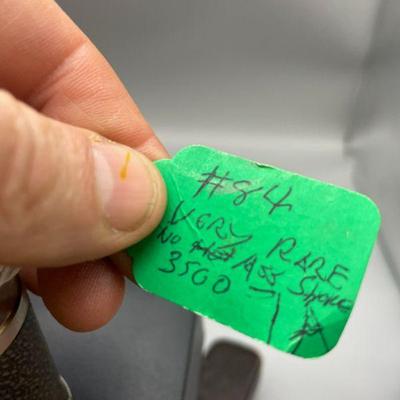 #84
VERY RARE
NO ASS SHOKE
3500